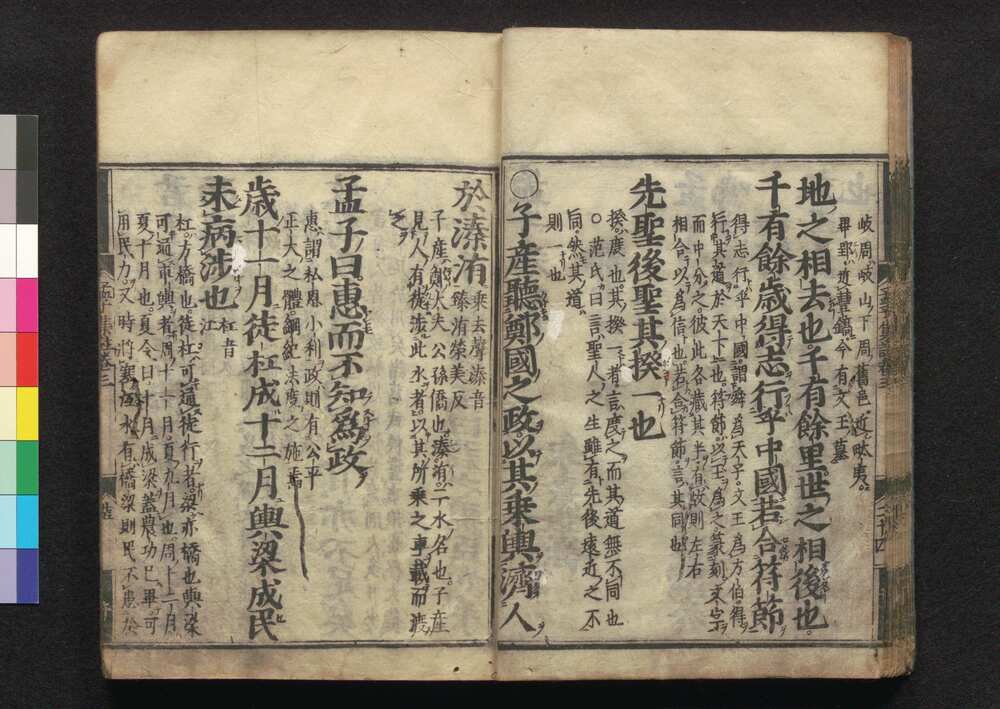 岐周岐山下周舊邑近畎夷
畢郢近豐鎬今有文王墓
地之相去也千有餘里世之相後也
千有餘歳得志行乎中國若合符節
得志行乎中國謂舜爲天子文王爲方伯得
行其道於天下也符節以玉爲之篆刻文字
而中分之彼此各藏其半有故則左右
相合以爲信也若合符節言其同也
先聖後聖其揆一也
揆度也其揆一者言度之而其道無不同也
○范氏曰言聖人之生雖有先後遠近之不
同然其道
則一也
○子産聽鄭國之政以其乘輿濟人
於溱洧
乘去聲溱音
臻洧榮美反
子産鄭大夫公孫僑也溱洧二水名也子産
見人有徒渉此水者以其所乘之車載而渡
之
孟子曰惠而不知爲政
惠謂私恩小利政則有公平
正大之體綱紀法度之施焉
歳十一月徒杠成十二月輿梁成民
未病渉也
杠音
江
杠方橋也徒杠可通徒行者梁亦橋也輿梁
可通車輿者周十一月夏九月也周十二月
夏十月也夏令曰十月成梁蓋農功已畢可
用民力又時將寒沍水有橋梁則民不患於